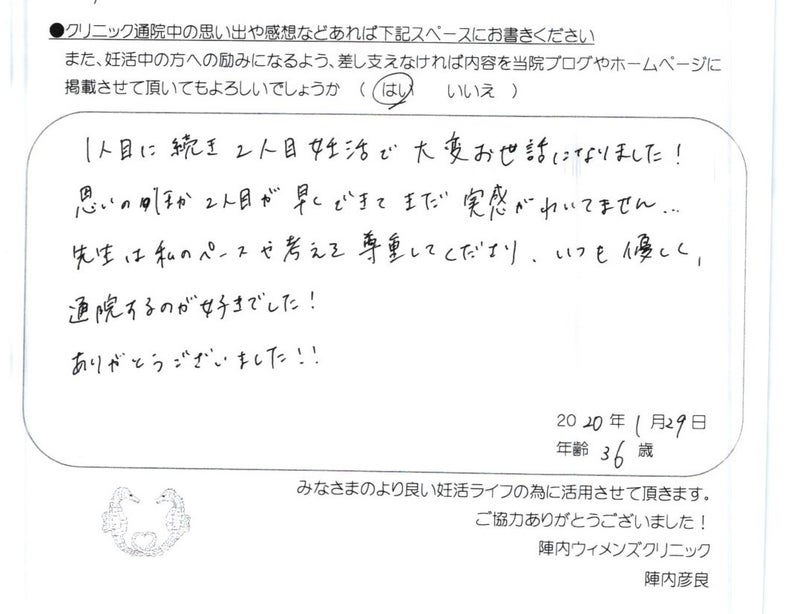 ●クリニック通院中の思い出や感想などあれば下記スペースにお書きください
また、妊活中の方への励みになるよう、差し支えなければ内容を当院ブログやホームページに
掲載させて頂いてもよろしいでしょうか （ はい いいえ ）
1人目に続き2人目妊活で大変お世話になりました！
思いの外2人目が早くできてまだ実感がわいてません…
先生は私のペースや考えを尊重してくださり、いつも優しく、
通院するのが好きでした！
ありがとうございました！！
2020年1月29日
年齢 36 歳
みなさまのより良い妊活ライフの為に活用させて頂きます。
ご協力ありがとうございました！
陣内ウィメンズクリニック
陣内彦良